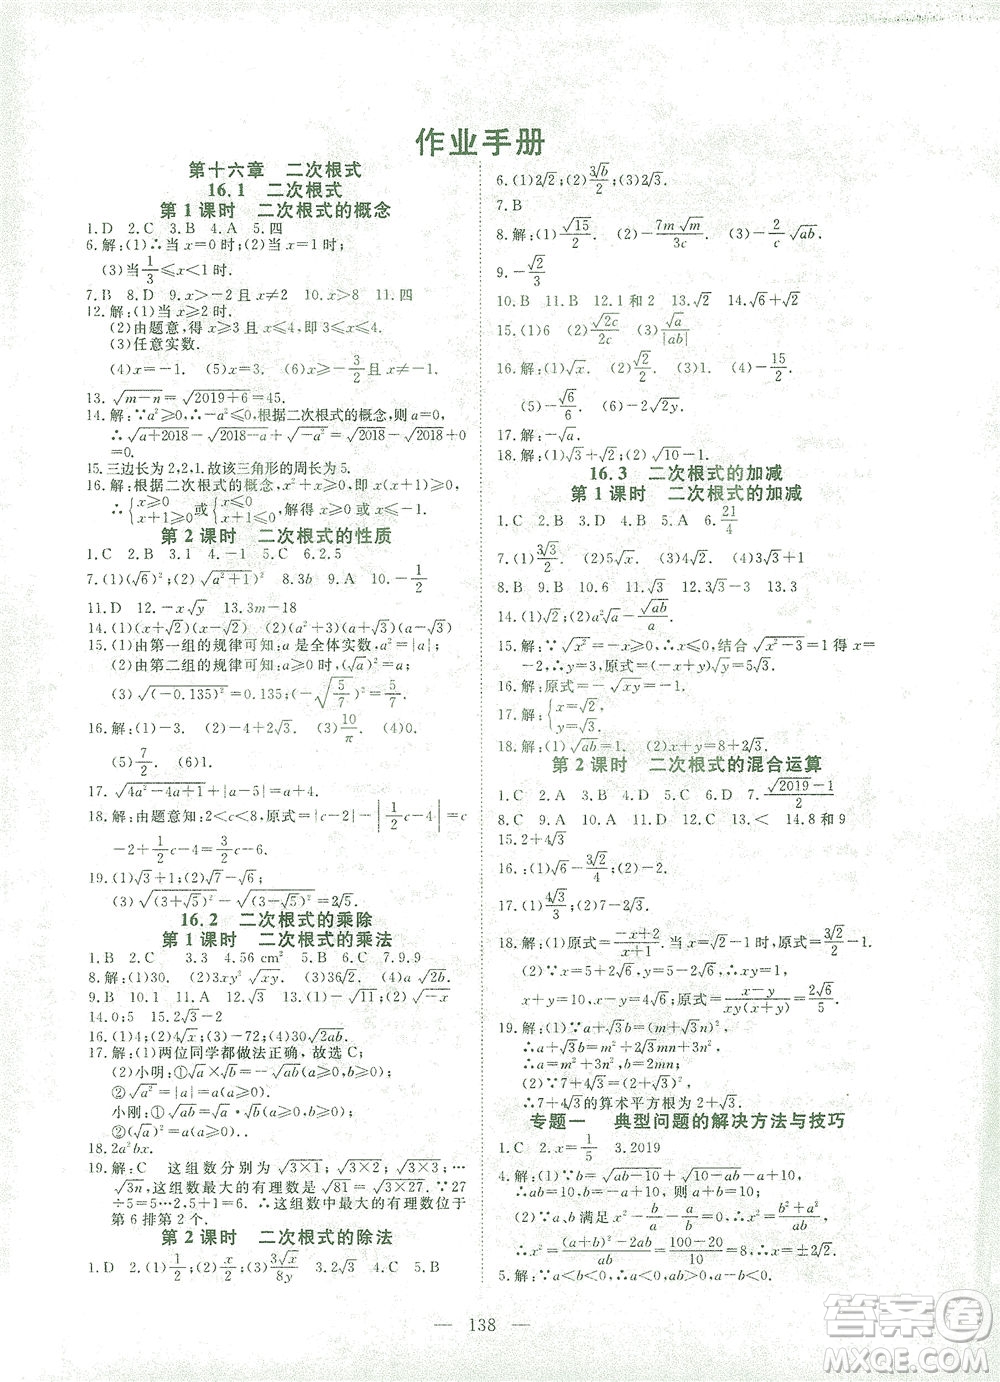 作业手册
第十六章 二次根式
16.1 二次根式
第1课时 二次根式的概念
1.D 2.C 3.B 4.A 5.四
6.解:(1)∴当x=0时;(2)当x=1时;
(3)当1/3≤x<1时.
7.B 8.D 9.x>-2且x≠0 10.x>8 11.四
12.解:(1)当x≥2时.
(2)由题意,得x≥3且x≤4,即3≤x≤4.
(3)任意实数.
(4)x=-1. (5)x=0. (6)-3/2≤x≤2.
13.√(m-n)=√(2019+6)=45.
14.解:∵a²≥0,∴-a²≤0,根据二次根式的概念,则a=0,
∴√(a+2018)-√(2018-a)+√(-a²)=√2018-√2018=0.
15.三边长为2,2,1.故该三角形的周长为5.
16.解:根据二次根式的概念,x²+x≥0,即x(x+1)≥0,
∴{x≥0 x+1≥0或{x≤0 x+1≤0,解得x≥0或x≤-1.
第2课时 二次根式的性质
1.C 2.B 3.1 4.-1 5.C 6.2.5
7.(1)(√6)²;(2)√(a²+1)² 8.3b 9.A 10.-1/2
11.D 12.-x√y 13.3m-18
14.(1)(x+√2)(x-√2) (2)(a²+3)(a+√3)(a-√3)
15.(1)由第一组的规律可知:a是全体实数,√a²=|a|;
(2)由第二组的规律可知:a≥0,(√a)²=a;
(3)√(-0.135)²=0.135;(-√(5/7))²=5/7.
16.解:(1)-3. (2)-4+2√3. (3)√2. (4)10/π.
(5)7/2. (6)-2.
17.√(4a²-4a+1)+|a-5|=a+4.
18.解:由题意知:2<c<8,原式=|c-2|-|1/2c-4|=c
-2+1/2c-4=3/2c-6.
19.(1)√3+1;(2)√5-√3;
(3)√(3+√5)²-√(3-√5)²=2√5.
16.2 二次根式的乘除
第1课时 二次根式的乘法
1.B 2.C 3.3 4.56 cm² 5.C 6.C 7.9.9
8.解:(1)30. (2)3xy²√xy. (3)10. (4)ac√2b.
9.B 10.1 11.A 12.D 13.(1)-√11;(2)√-x
14.0;5 15.2√3-2
16.(1)4;(2)4√x;(3)-72;(4)30√2ab.
17.解:(1)两位同学都做法正确,故选C;
(2)小明:①√a×√b=√ab(a≥0,b≥0);
②√a²=|a|=a(a≥0);
小刚:①√ab=√a·√b(a≥0,b≥0);
②(√a)²=a(a≥0).
18.2a²bx.
19.解:C 这组数分别为√(3×1),√(3×2),√(3×3),…
√3n,这组数最大的有理数是√81=√(3×27).∵27
÷5=5…2,∴这组数中最大的有理数位于
第6排第2个.
第2课时 二次根式的除法
1.D 2.(1)√2/2;(2)√x/2;(3)3√x/8y 3.2√3 4.C 5.B
6.(1)2√2;(2)3√b/2;(3)2√3.
7.B
8.解:(1)√15/2. (2)-7m√m/3c. (3)-2/c√ab.
9.-√2/3
10.B 11.B 12.1和2 13.√2 14.√6+√2
15.(1)6 (2)√2c/2c (3)√a/|ab|
16.解:(1)√x. (2)√3. (3)1. (4)-15/2.
(5)-√6/6. (6)-2√2y.
17.解:-√a.
18.解:(1)√3+√2. (2)√10-1.
16.3 二次根式的加减
第1课时 二次根式的加减
1.C 2.D 3.B 4.B 5.A 6.21/4
7.(1)3√3/2. (2)5√2. (3)4√2. (4)√3+1
8.B 9.B 10.6 11.√3 12.3√2-√3 13.3
14.(1)√2;(2)a²√a-√ab/a.
15.解:∵√x²=-x≥0,∴x≤0,结合√(x²-3)=1得x=
-2.∴y=3,原式=√(y-x+4)=3.
16.解:原式=-√xy=-1.
17.解:{x=√2, y=√3.
18.解:(1)√ab=1. (2)x+y=8+2√3.
第2课时 二次根式的混合运算
1.C 2.A 3.B 4.B 5.D 6.D 7.(√2019-1)/2
8.C 9.D 10.B 11.B 12.A 13.< 14.8和9
15.2+4√3
16.:(1)√2-1;(2)-2.
17.(1)4√3/3;(2)√a+√b.
18.解:(1)原式=(-x+2)/(x+1).当x=√2-1时,原式=
(2)∵x=√5+√2,y=√5-√2,∴xy=3,
x+y=2√5,x-y=2√2;原式=(x-y)/(xy(x+y))=2√6/5.
19.解:(1)∵a+√3b=(m+√3n)²,
∴a+√3b=m²+2√3mn+3n²,
∴a=m²+3n²,b=2mn.
(2)∵7+4√3=(2+√3)²,
∴7+4√3的算术平方根为2+√3.
专题一 典型问题的解决方法与技巧
1.C 2.x=1/5 3.2019
4.解:(1)∵b=√(ab-10)+√(10-ab)-a+10,
∴ab=10,b=-a+10,则a+b=10;
(2)∵a,b满足x=√(b/a)+√(a/b),∴x²=(b²+a²)/ab+2,
∴x²=((a+b)²-2ab+2ab)/ab=(100-20+20)/10=10,∴x=√10.
5.解:∵a<b<0,∴a-b<0,a+b<0.
138
答案圈
MXQE.COM